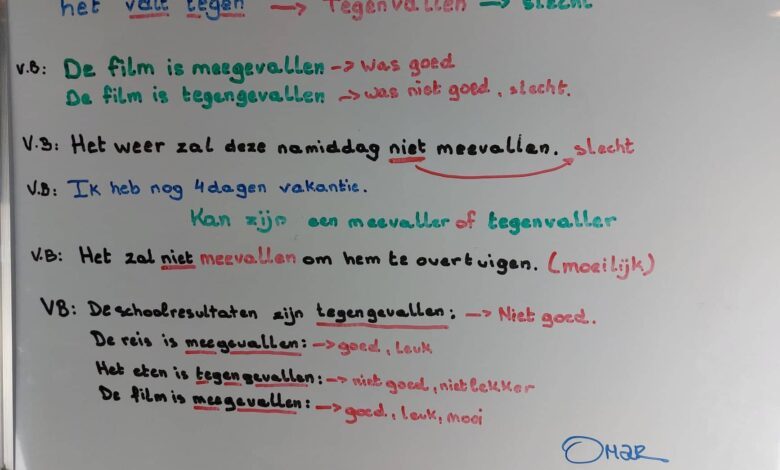 het valt tegen → Tegenvallen → slecht
V.B: De film is meegevallen → was goed
De film is tegengevallen → was niet goed, slecht.
V.B: Het weer zal deze namiddag niet meevallen. slecht
V.B: Ik heb nog 4 dagen vakantie.
Kan zijn een meevaller of tegenvaller
V.B: Het zal niet meevallen om hem te overtuigen. (moeilijk)
VB: De schoolresultaten zijn tegengevallen: → Niet goed.
De reis is meegevallen: → goed, leuk
Het eten is tegengevallen: → niet goed, niet lekker
De film is meegevallen: → goed, leuk, mooi
Omar